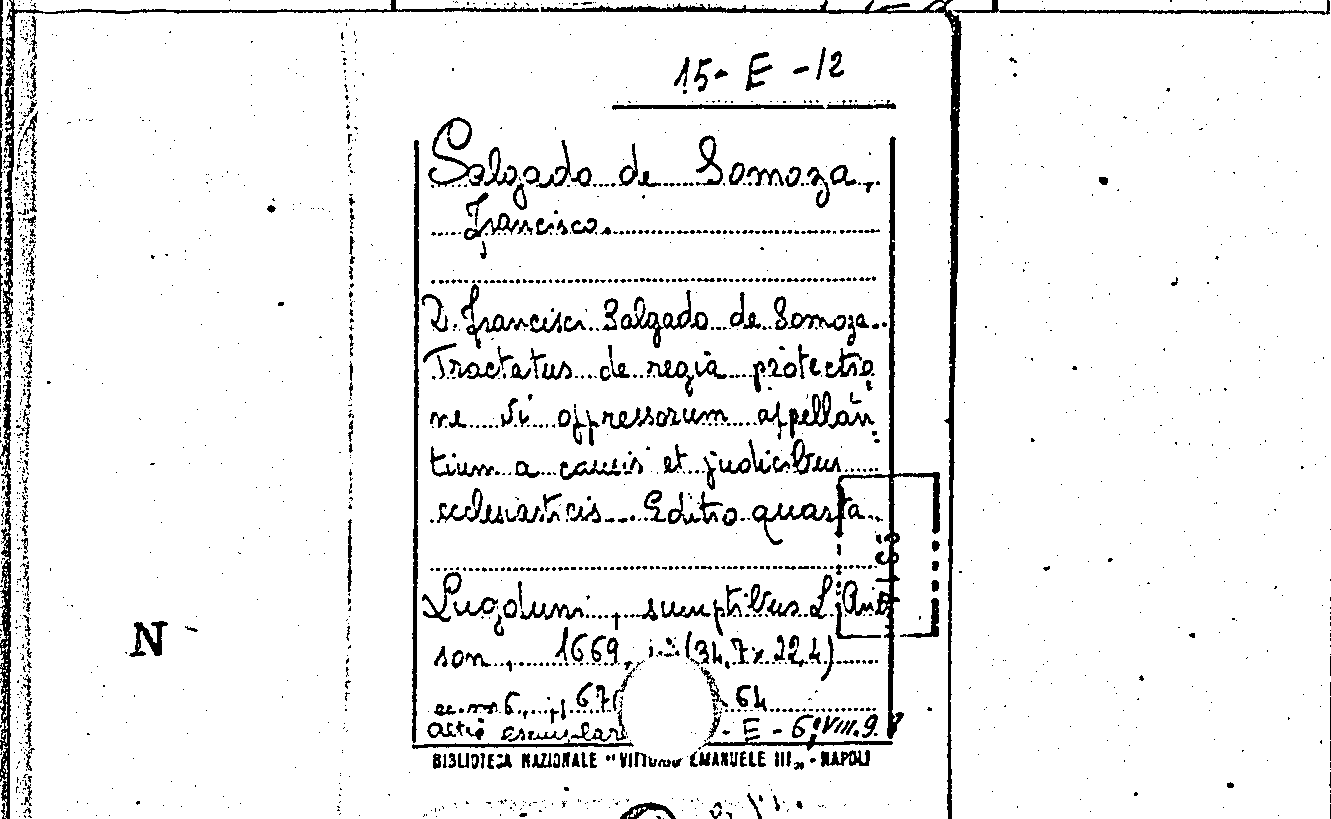 15- E -12
Salgado de Somoza,
Francisco.
D. Francisci Salgado de Somoza..
Tractatus de regia protectio
ne vi oppressorum appellan
tium a causis et judicibus
ecclesiasticis... Editio quarta..
Lugduni, sumptibus L. Anis
son, 1669, (34,7 x 22,4)
64
altri esemplari - E - 6, VIII. 9.
BIBLIOTECA NAZIONALE "VITTORIO EMANUELE III„ - NAPOLI
N